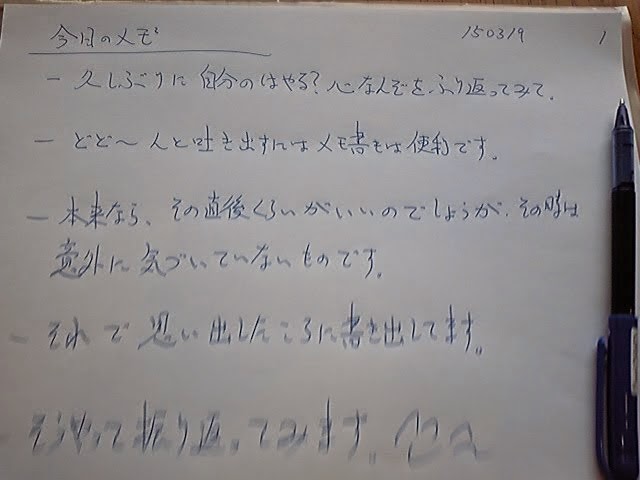 今日のメモ 150319 1
- 久しぶりに自分のはやる?心なんぞをふり返ってみて。
- どど〜んと吐き出すにはメモ書きは便利です。
- 本来なら、その直後くらいがいいのでしょうが、その時は
意外に気づいていないものです。
- それで思い出したころに書き出してます。
そうやって振り返ってみます。